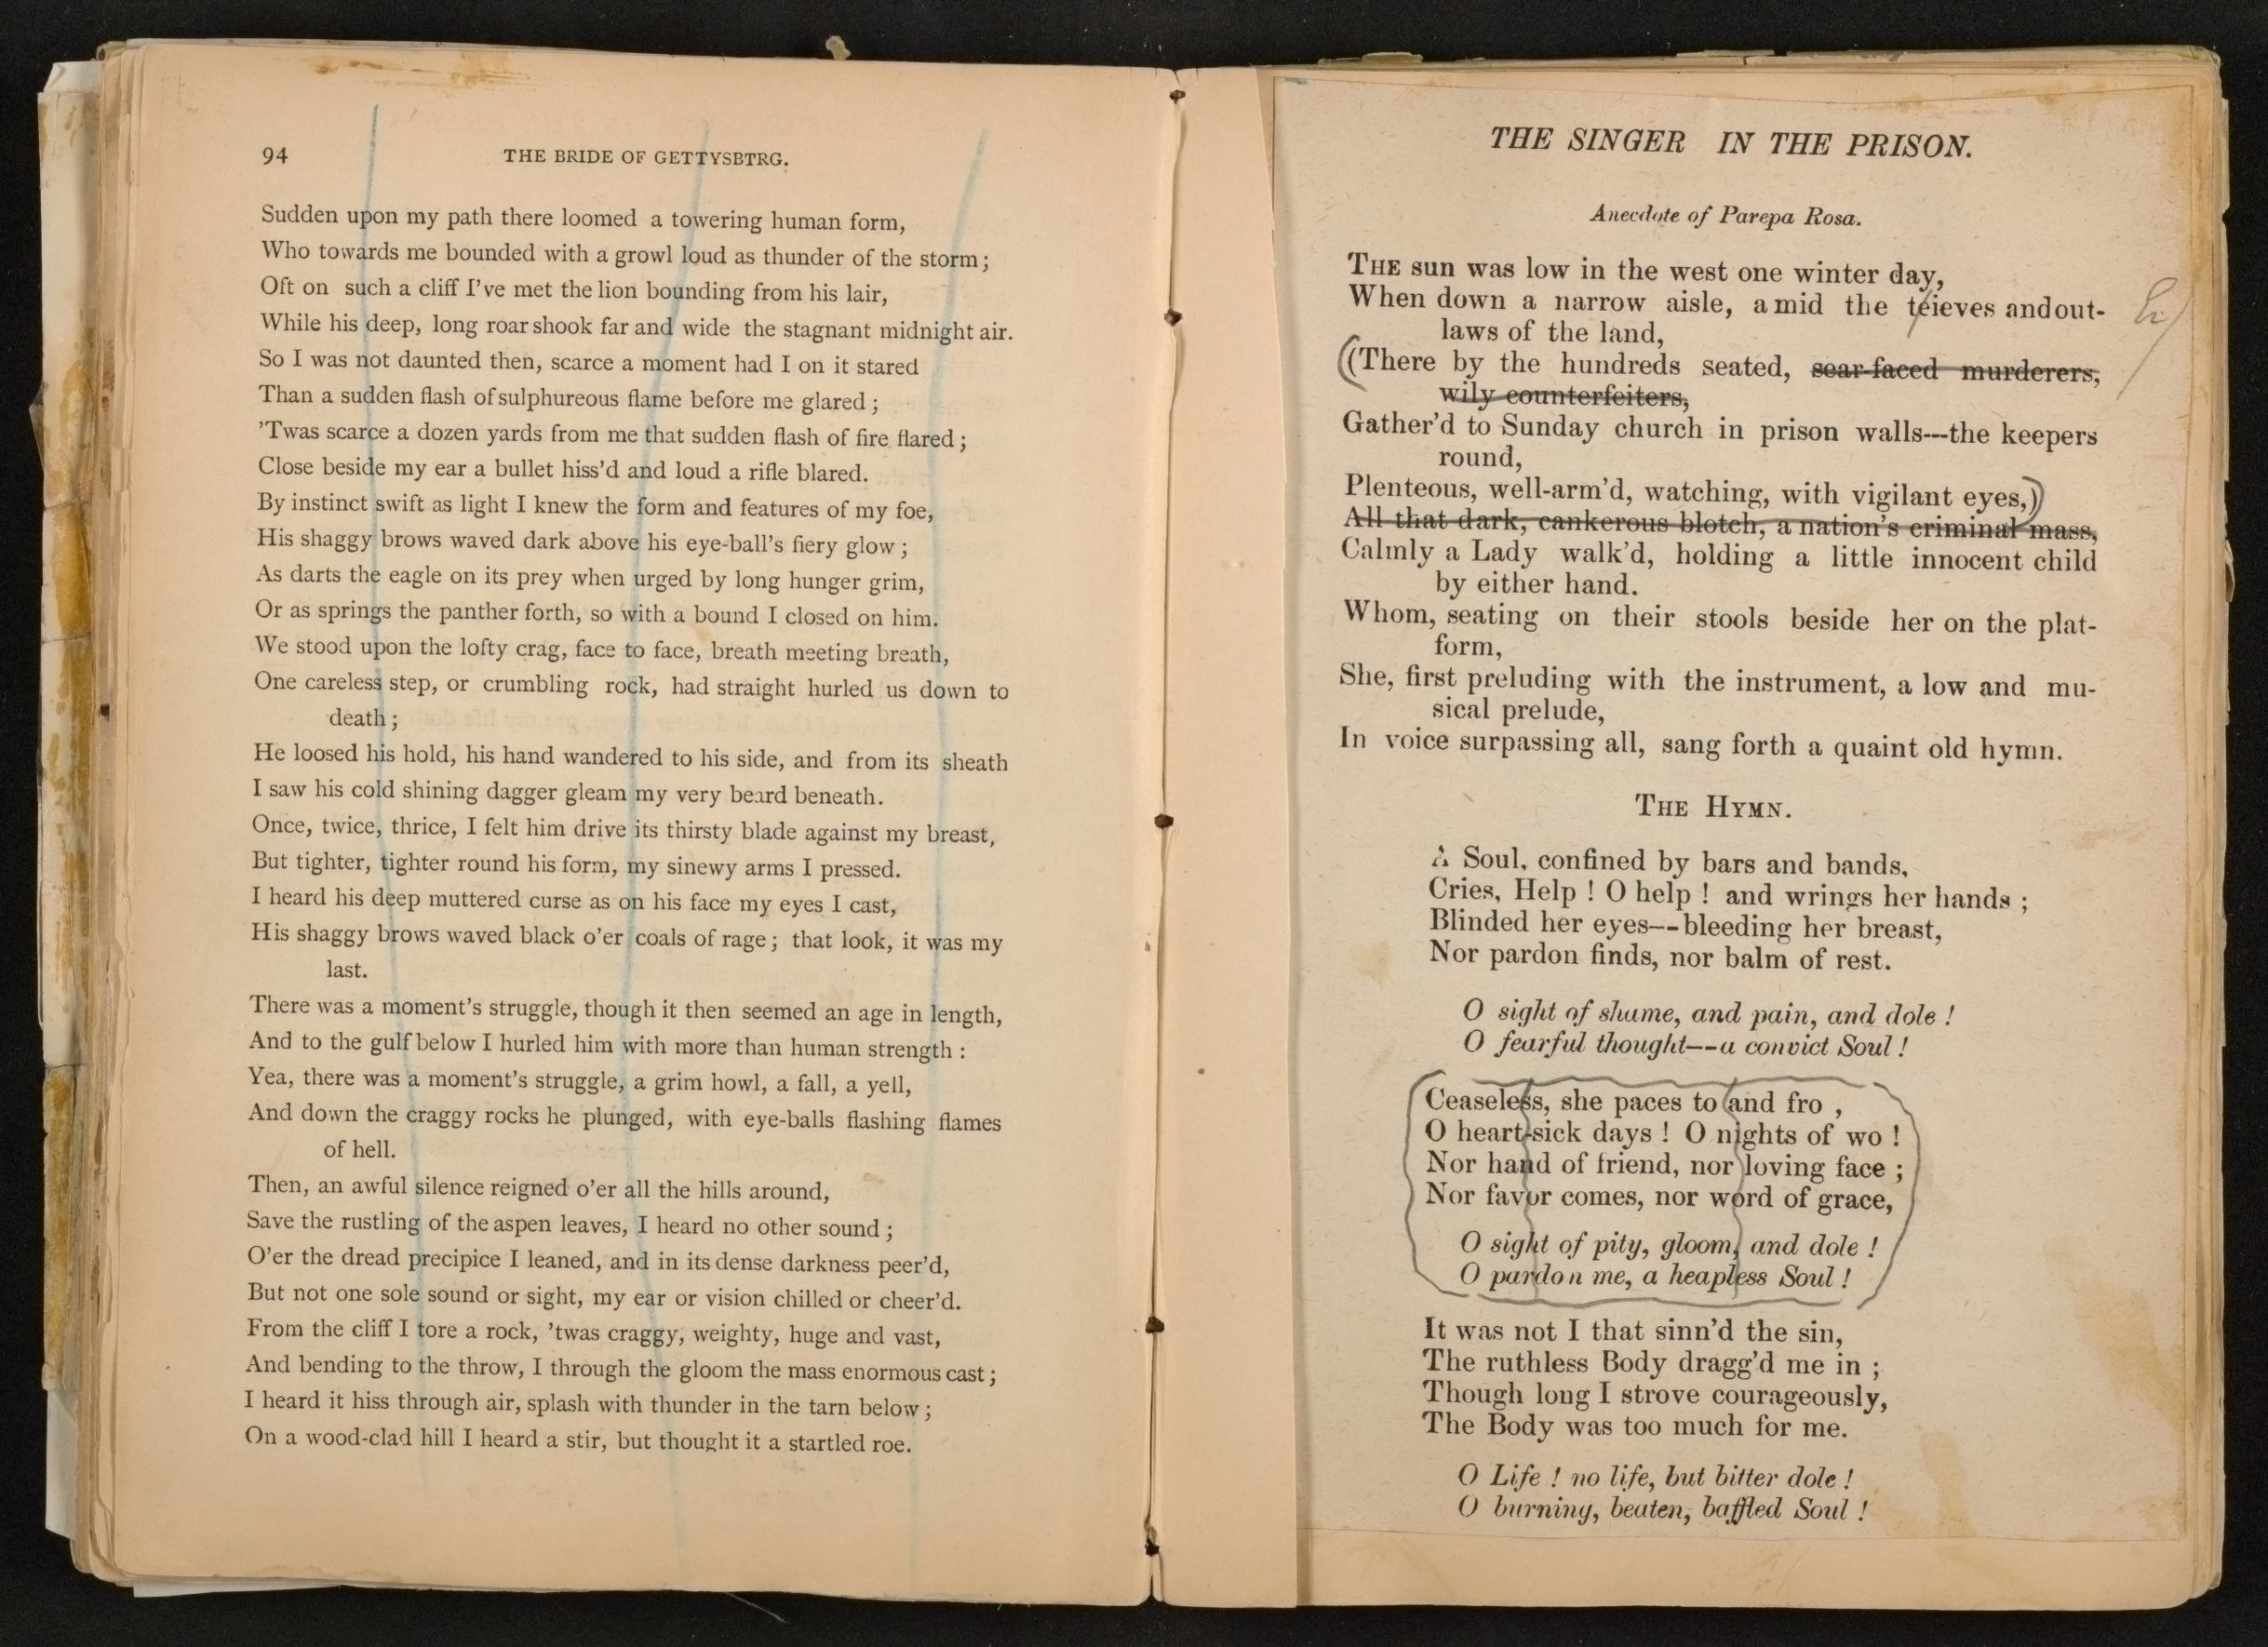 94
THE BRIDE OF GETTYSBTRG.
Sudden upon my path there loomed a towering human form,
Who towards me bounded with a growl loud as thunder of the storm;
Oft on such a cliff I've met the lion bounding from his lair,
While his deep, long roar shook far and wide the stagnant midnight air.
So I was not daunted then, scarce a moment had I on it stared
Than a sudden flash of sulphureous flame before me glared;
'Twas scarce a dozen yards from me that sudden flash of fire flared;
Close beside my ear a bullet hiss'd and loud a rifle blared.
By instinct swift as light I knew the form and features of my foe,
His shaggy brows waved dark above his eye-ball's fiery glow;
As darts the eagle on its prey when urged by long hunger grim,
Or as springs the panther forth, so with a bound I closed on him.
We stood upon the lofty crag, face to face, breath meeting breath,
One careless step, or crumbling rock, had straight hurled us down to
death;
He loosed his hold, his hand wandered to his side, and from its sheath
I saw his cold shining dagger gleam my very beard beneath.
Once, twice, thrice, I felt him drive its thirsty blade against my breast,
But tighter, tighter round his form, my sinewy arms I pressed.
I heard his deep muttered curse as on his face my eyes I cast,
His shaggy brows waved black o'er coals of rage; that look, it was my
last.
There was a moment's struggle, though it then seemed an age in length,
And to the gulf below I hurled him with more than human strength:
Yea, there was a moment's struggle, a grim howl, a fall, a yell,
And down the craggy rocks he plunged, with eye-balls flashing flames
of hell.
Then, an awful silence reigned o'er all the hills around,
Save the rustling of the aspen leaves, I heard no other sound;
O'er the dread precipice I leaned, and in its dense darkness peer'd,
But not one sole sound or sight, my ear or vision chilled or cheer'd.
From the cliff I tore a rock, 'twas craggy, weighty, huge and vast,
And bending to the throw, I through the gloom the mass enormous cast;
I heard it hiss through air, splash with thunder in the tarn below;
On a wood-clad hill I heard a stir, but thought it a startled roe.
THE SINGER IN THE PRISON.
Anecdote of Parepa Rosa.
THE sun was low in the west one winter day,
When down a narrow aisle, amid the teieves and out-
laws of the land,
h/
((There by the hundreds seated, sear-faced murderers,
wily counterfeiters,
Gather'd to Sunday church in prison walls---the keepers
round,
Plenteous, well-arm'd, watching, with vigilant eyes,))
All that dark, cankerous blotch, a nation's criminal mass,
Calmly a Lady walk'd, holding a little innocent child
by either hand.
Whom, seating on their stools beside her on the plat-
form,
She, first preluding with the instrument, a low and mu-
sical prelude,
In voice surpassing all, sang forth a quaint old hymn.
THE HYMN.
A Soul, confined by bars and bands,
Cries, Help! O help! and wrings her hands;
Blinded her eyes--bleeding her breast,
Nor pardon finds, nor balm of rest.
O sight of shame, and pain, and dole!
O fearful thought--a convict Soul!
Ceaseless, she paces to and fro ,
O heart-sick days! O nights of wo!
Nor hand of friend, nor loving face;
Nor favor comes, nor word of grace,
O sight of pity, gloom, and dole!
O pardon me, a heapless Soul!
It was not I that sinn'd the sin,
The ruthless Body dragg'd me in;
Though long I strove courageously,
The Body was too much for me.
O Life! no life, but bitter dole!
O burning, beaten, baffled Soul!